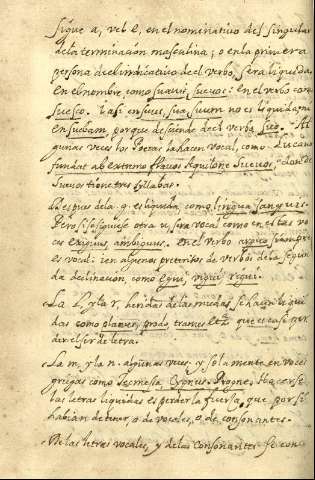 sigue a, vel e, en el nominativo del singular
de la terminacion masculina; o en la primera
persona de el indicativo de el verbo, sera liquida,
en el nombre, como suavis, suevos: en el verbo como
suesco. Y asi en suus, sua suum no es liquida ni
en suebam, porque desciende de el verbo suo. Al-
gunas veces los Poetas la hacen vocal, como: Lucano
fundat ab extremo flavos Aquilone Suevos, donde
Suevos tiene tres syllabas.
Despues de la g. es liquida como lingua sanguis.
Pero si se siguiese otra u, sera vocal como en estas vo
ces exiguus, ambiguus. En el verbo arguo siempre
es vocal: i en algunos preteritos de verbos de la segun
da declinacion, como egui, vigui, rigui.
La L, y la r, heridas de las mudas se hacen liqui
das como planus, prodo, tramus etz. que es casi per
der el ser de letra.
La m, y la n. algunas veces. y solamente en voces
griegas como Tecmessa, Cygnus. Progne. Hacerse
las letras liquidas es perder la fuerza, que por si
habian de tener, o de vocales, o de consonantes.
De las letras vocales, y de las consonantes se con